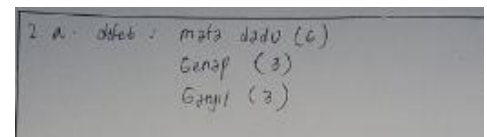 2 a. diket : mata dadu (6)
Genap (3)
Ganjil (3)